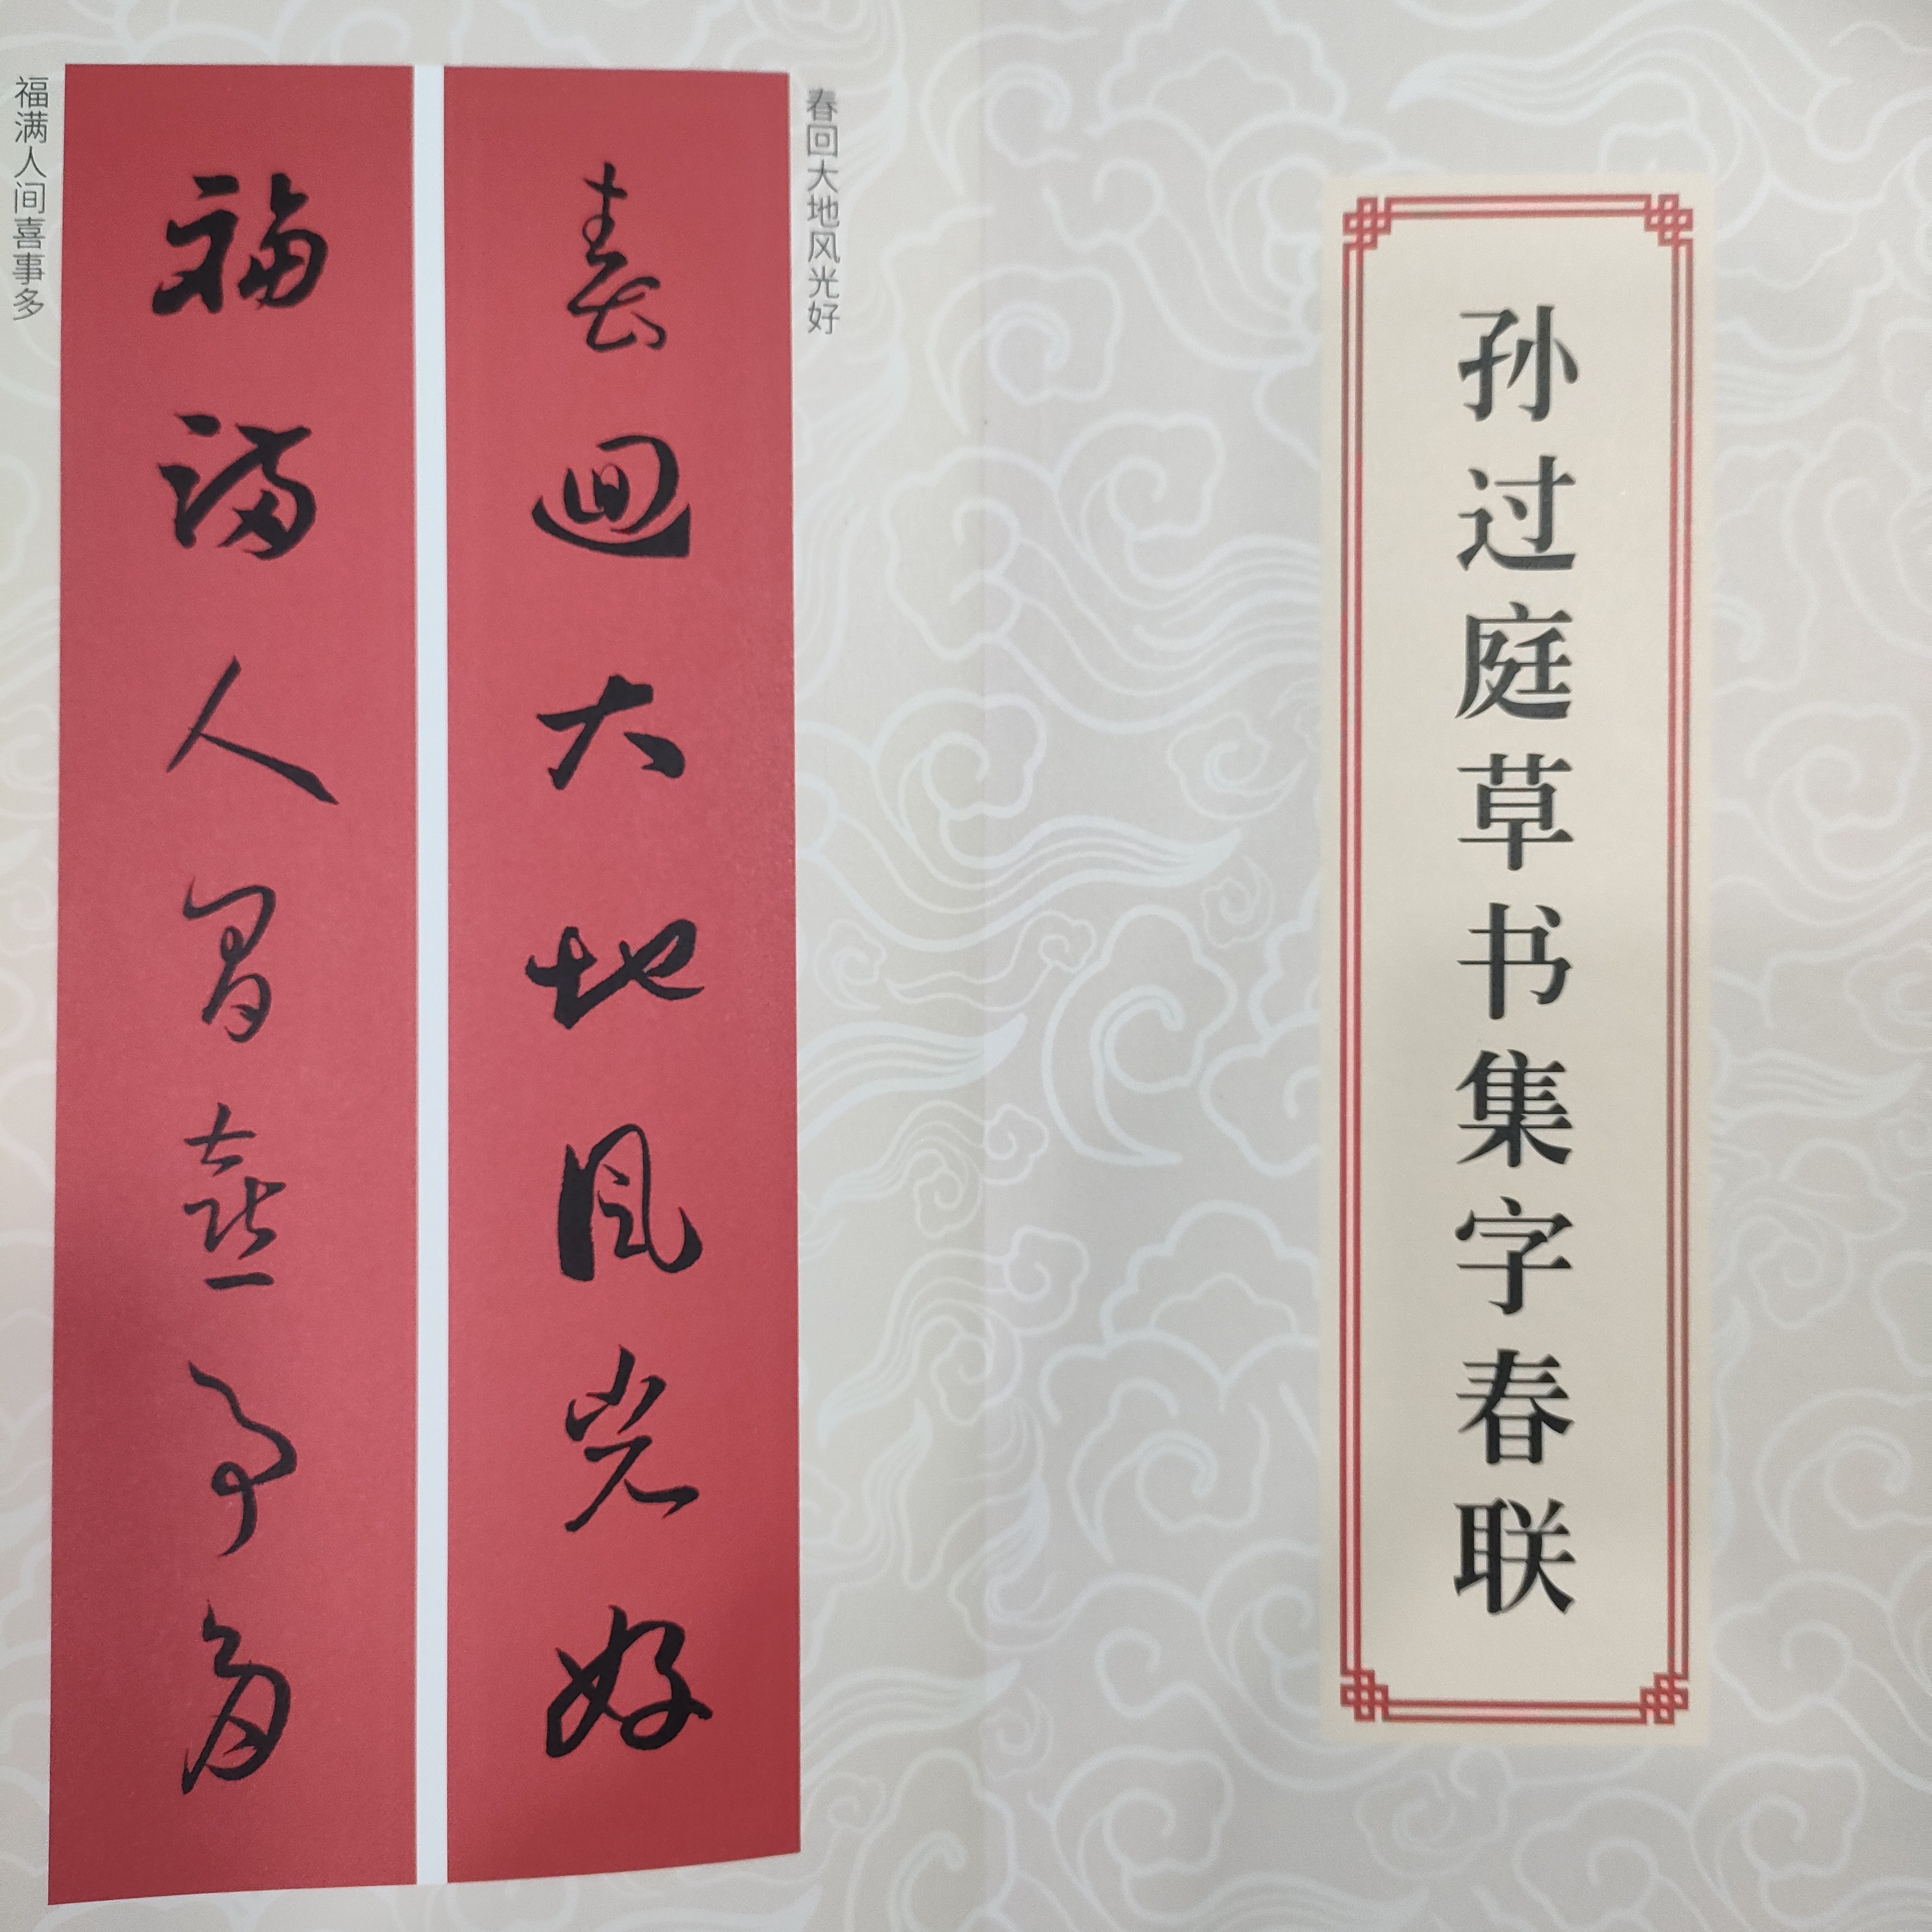 孙过庭草书集字春联
春回大地风光好
春回大地风光好
福满人间喜事多
福满人间喜事多